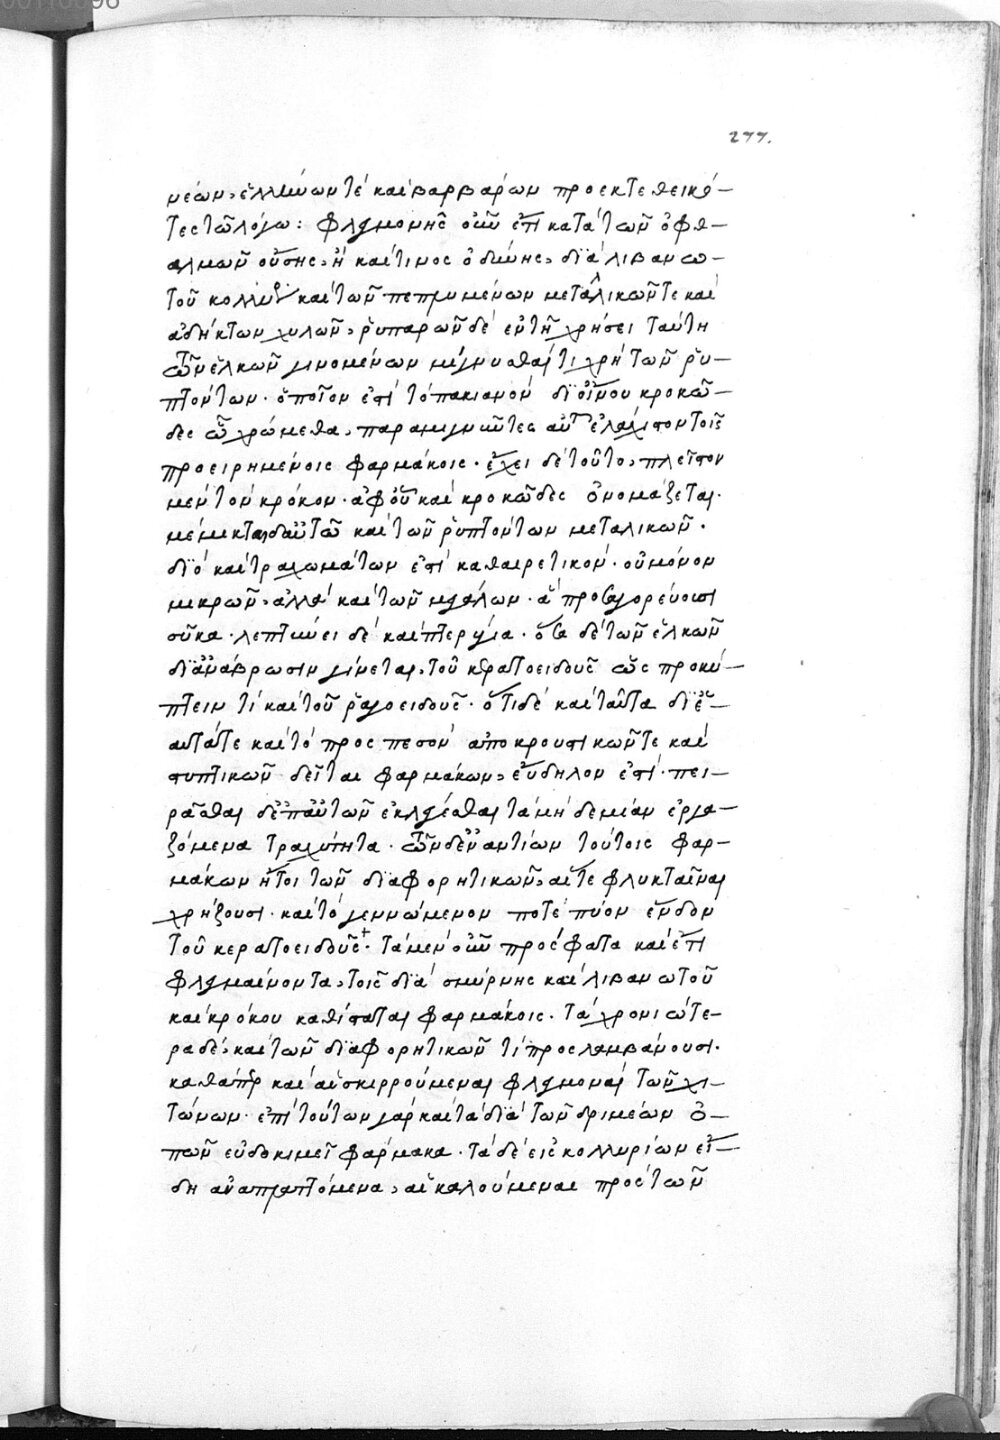 277.
νέων, ἑλλήνων τὲ καὶ βαρβάρων προεκτεθεικό-
τες τῶ λόγω: φλεγμονῆς οὖν ἔτι κατὰ τῶν ὀφθ-
αλμῶν οὔσης, ἢ καί τινος ὀδύνης, διὰ λιβανω-
τοῦ καὶ τῶν πεπλυμένων μεταλλικῶν τε καὶ
ἀδήκτων χυλῶν, ῥυπαρῶν δὲ ἐν τῆ χρήσει ταύτη
τῶν ἑλκῶν γινομένων μίγνυσθαί τι χρὴ τῶν ῥυ-
πτόντων. ὁποῖον ἐστὶ τὸ πακιανὸν δι οἴνου κροκῶ-
δες ὧ χρώμεθα, παραμιγνύντες αὐτὸ ἐλάχιστον τοῖς
προειρημένοις φαρμάκοις. ἔχει δὲ τοῦτο, πλεῖστον
μὲν τὸν κρόκον. ἀφ οὗ καὶ κροκῶδες ὀνομάζεται.
μέμικται δ αὐτῶ καὶ τῶν ῥυπτόντων μεταλικῶν.
διὸ καὶ τραχωμάτων ἐστὶ καθαιρετικόν. οὐ μόνον
μικρῶν, ἀλλὰ καὶ τῶν μεγάλων. ἃ προσαγορεύουσι
σῦκα. λεπτύνει δὲ καὶ πτερύγια. ὅσα δὲ τῶν ἑλκῶν
δι ἀνάβρωσιν γίνεται, τοῦ κερατοειδοῦς ὡς προκύ-
πτειν τὶ καὶ τοῦ ῥαγοειδοῦς. ὅτι δὲ καὶ ταῦτα διέ-
σταται τε καὶ τὸ προσπεσὸν ἀποκρουστικῶν τε καὶ
στυπτικῶν δεῖται φαρμάκων, εὔδηλον ἐστί. πει-
ρᾶσθαι δὲ ἀπ αὐτῶν ἐκλέγεσθαι τὰ μὴ δεμίαν ἐργα-
ζόμενα τραχύτητα. τῶν δ ἐναντίων τούτοις φαρ-
μάκων ἤτοι τῶν διαφορητικῶν, αἵ τε φλυκταῖναι
χρήζουσι. καὶ τὸ γεννώμενον ποτὲ πύον ἔνδον
τοῦ κερατοειδοῦς. τὰ μὲν οὖν πρόσφατα καὶ ἔτι
φλεγμαίνοντα, τοῖς διὰ σμύρνης καὶ λιβανωτοῦ
καὶ κρόκου καθίσταται φαρμάκοις. τὰ χρονιώτε-
ρα δὲ, καὶ τῶν διαφορητικῶν τὶ προσλαμβάνουσι.
καθάπερ καὶ αἱ σκιρρούμεναι φλεγμοναὶ τῶν χι-
τώνων. ἐπὶ τούτων γὰρ καὶ τὰ διὰ τῶν δριμέων ὀ-
πῶν εὐδοκιμεῖ φάρμακα. τὰ δὲ εἰς κολλυρίων εἴ-
δη ἀναπλαττόμενα, αἱ καλούμεναι πρὸς τῶν